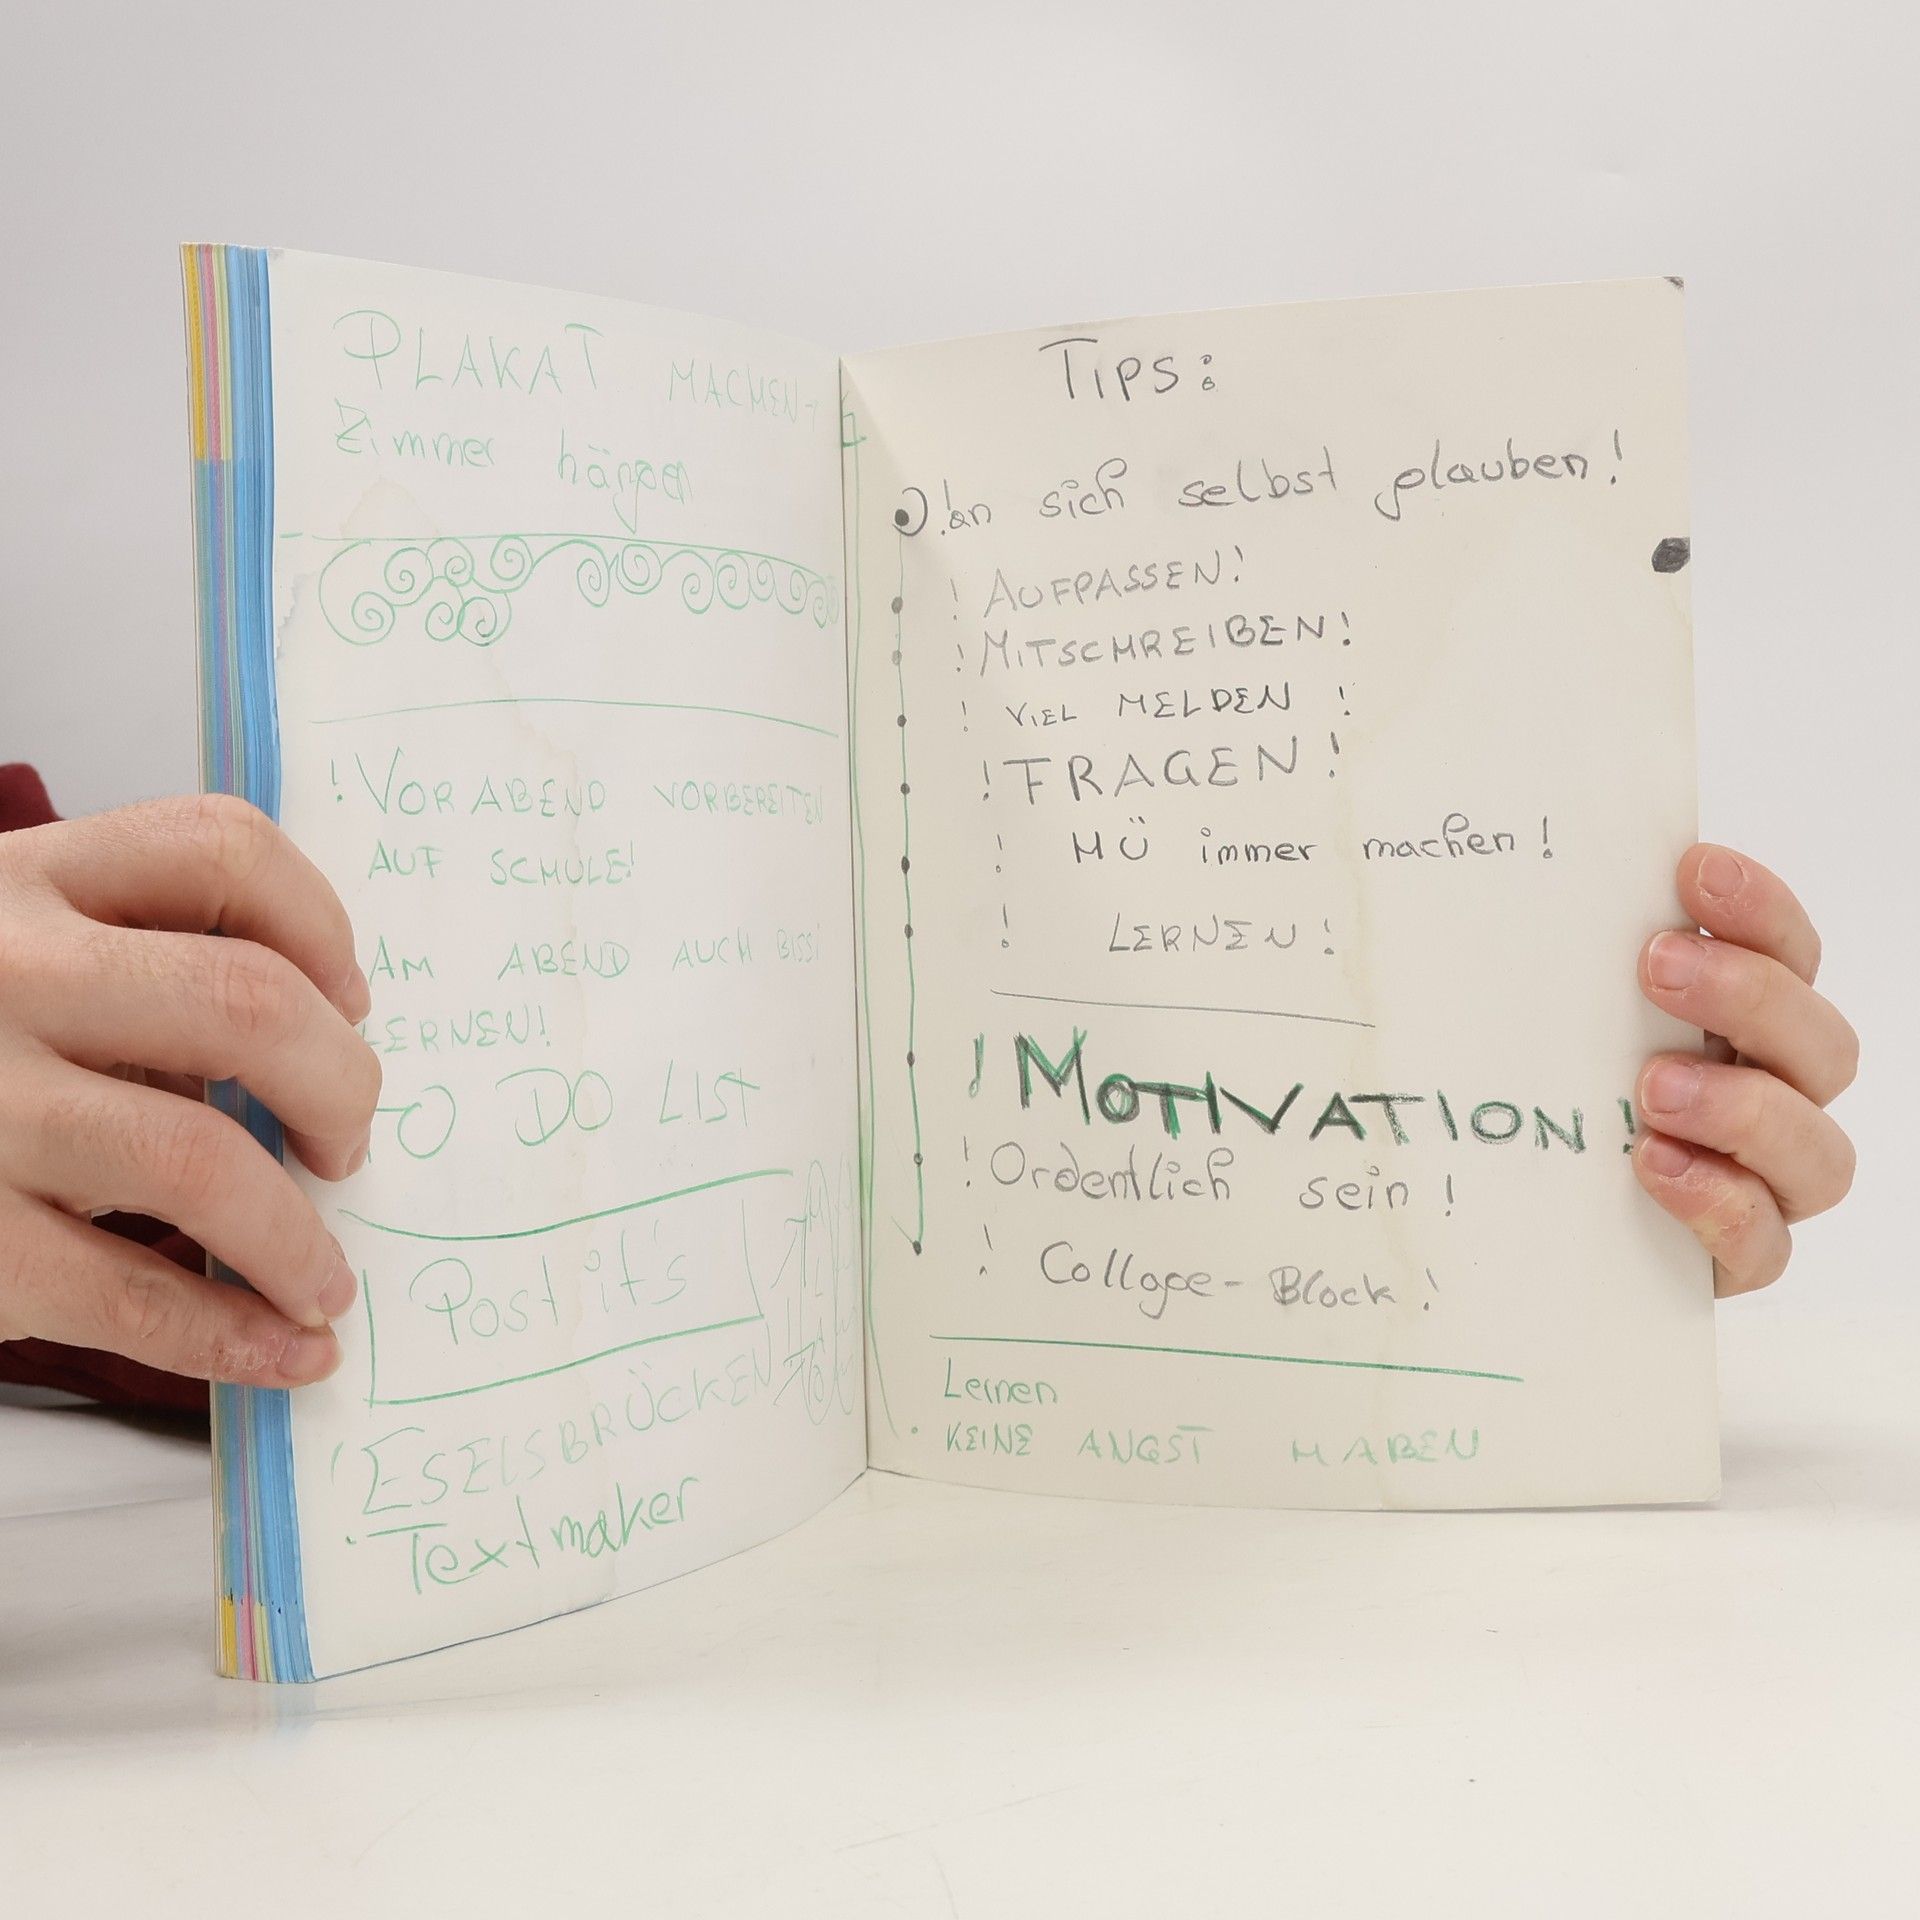 PLAKAT MACHEN →
Zimmer hängen
! VORABEND VORBEREITEN
AUF SCHULE!
AM ABEND AUCH BISSI
LERNEN!
TO DO LIST
Post it's
! ESELSBRÜCKEN
! Textmaker
TIPS:
! an sich selbst glauben!
! AUFPASSEN!
! MITSCHREIBEN!
! VIEL MELDEN !
! FRAGEN!
! HÜ immer machen!
! LERNEN!
! MOTIVATION!
! Ordentlich sein!
! Collage-Block!
Lernen
KEINE ANGST HABEN